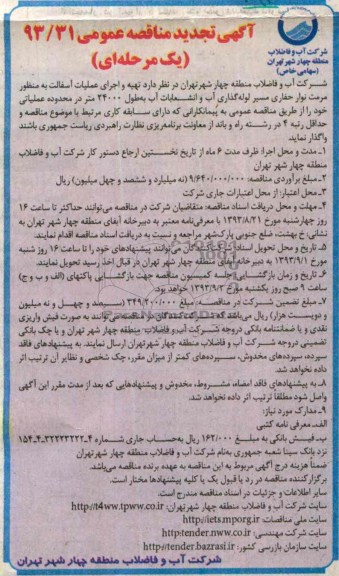 آگهی تجدید مناقصه عمومی ۹۳/۳۱
(یک مرحله‌ای)
شرکت آب و فاضلاب
منطقه چهار شهر تهران
(سهامی خاص)
شرکت آب و فاضلاب منطقه چهار شهرتهران در نظر دارد تهیه و اجرای عملیات آسفالت به منظور
مرمت نوار حفاری مسیر لوله‌گذاری آب و انشعابات آب به‌طول ۲۴۰۰۰ متر در محدوده عملیاتی
خود را از طریق مناقصه عمومی به پیمانکارانی که دارای سابقه کاری مرتبط با موضوع مناقصه و
حداقل رتبه ۴ در رشته راه و باند از معاونت برنامه‌ریزی نظارت راهبردی ریاست جمهوری باشند
واگذار نماید
۱ـ مدت و محل اجرا: ظرف مدت ۶ ماه از تاریخ نخستین ارجاع دستور کار شرکت آب و فاضلاب
منطقه چهار شهر تهران
۲ـ مبلغ برآوردی مناقصه: ۹/۶۴۰/۰۰۰/۰۰۰ (نه میلیارد و ششصد و چهل میلیون) ریال
۳ـ محل اعتبار: از محل اعتبارات جاری شرکت
۴ـ مهلت و محل دریافت اسناد مناقصه: متقاضیان شرکت در مناقصه می‌توانند حداکثر تا ساعت ۱۶
روز چهارشنبه مورخ ۱۳۹۳/۸/۲۱ با معرفی‌نامه معتبر به دبیرخانه آبفای منطقه چهار شهر تهران به
نشانی: خ بهشت، ضلع جنوبی پارک‌شهر مراجعه و نسبت به دریافت اسناد مناقصه اقدام نمایند.
۵ـ تاریخ و محل تحویل اسناد: شرکت‌کنندگان می‌توانند پیشنهادهای خود را تا ساعت ۱۶ روز شنبه
مورخ ۱۳۹۳/۹/۱ به دبیرخانه آبفای منطقه چهار شهر تهران در قبال اخذ رسید تحویل نمایند.
۶ـ تاریخ و زمان بازگشایی: جلسه کمیسیون مناقصه جهت بازگشایی پاکتهای (الف و ب و ج)
ساعت ۹ صبح روز یکشنبه مورخ ۱۳۹۳/۹/۲ خواهد بود.
۷ـ مبلغ تضمین شرکت در مناقصه: مبلغ ۳۴۹/۲۰۰/۰۰۰ (سیصد و چهل و نه میلیون
و دویست هزار) ریال می‌باشد که شرکت کنندگان در مناقصه می‌توانند به صورت فیش واریزی
نقدی و یا ضمانتنامه بانکی دروجه شرکت آب و فاضلاب منطقه چهار شهر تهران و یا چک بانکی
تضمینی دروجه شرکت آب و فاضلاب منطقه چهار شهرتهران ارسال نمایند. به پیشنهادهای فاقد
سپرده، سپرده‌های مخدوش، سپرده‌های کمتر از میزان مقرر، چک شخصی و نظایر آن ترتیب اثر
داده نخواهد شد.
۸ـ به پیشنهادهای فاقد امضاء، مشروط، مخدوش و پیشنهادهایی که بعد از مدت مقرر این آگهی
واصل شود مطلقا ترتیب اثر داده نخواهد شد.
۹ـ مدارک مورد نیاز:
الف‌ـ معرفی نامه کتبی
ب‌ـ فیش بانکی به مبلغ ۱۶۲/۰۰۰ ریال به‌حساب جاری شماره
نزد بانک سینا شعبه جمهوری به‌نام شرکت آب و فاضلاب منطقه چهار شهر تهران
ضمناً هزینه درج آگهی مربوط به این مناقصه به عهده برنده مناقصه می‌باشد.
برگزارکننده مناقصه در رد یا قبول یک یا کلیه پیشنهادها مختار است.
سایر اطلاعات و جزئیات در اسناد مناقصه مندرج است.
سایت شرکت آب و فاضلاب منطقه چهار شهرتهران: http://t4ww.tpww.co.ir
سایت ملی مناقصات: http://iets.mporg.ir
سایت شرکت مهندسی: http:tender.nww.co.ir
سایت سازمان بازرسی کشور: http://tender.bazrasi.ir
شرکت آب و فاضلاب منطقه چهار شهر تهران